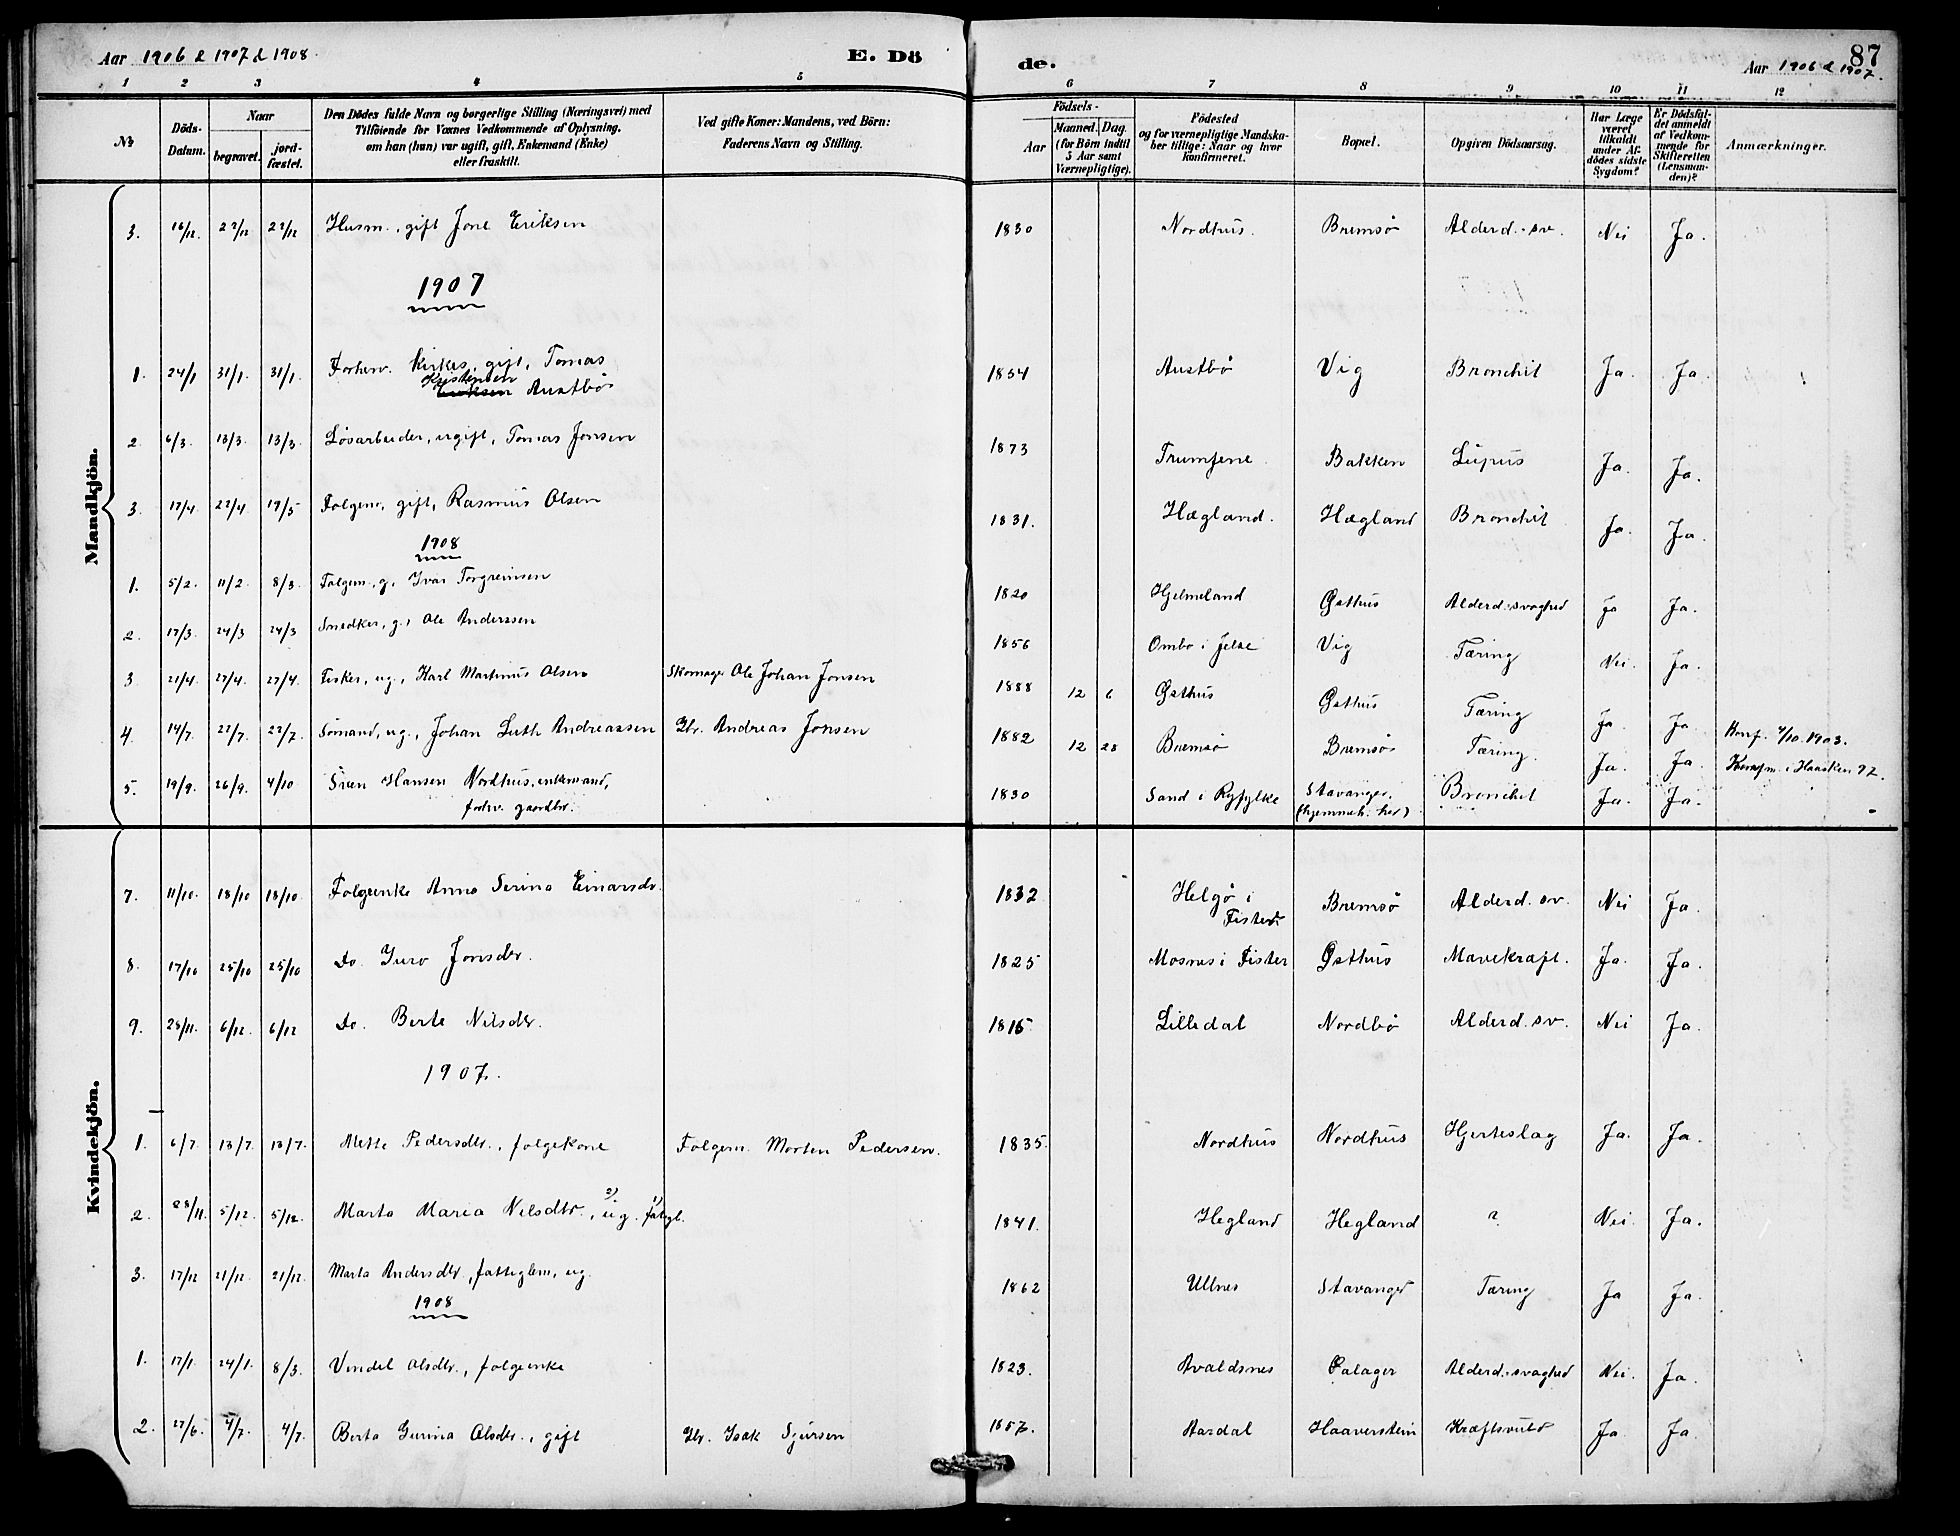 Aar 1906 & 1907 & 1908
E. Dö
de.
Aar 1906 & 1907.
87
1 2 3 4 5 6 7 8 9 10 11 12
№
Döds-Datum.
Naar
begravet.
jord-fæstet.
Den Dödes fulde Navn og borgerlige Stilling (Næringsvei) med
Tilföiende for Voxnes Vedkommende af Oplysning,
om han (hun) var ugift, gift, Enkemand (Enke)
eller fraskilt.
Ved gifte Koner: Mandens, ved Börn:
Faderens Navn og Stilling.
Födsels-
Aar
Maaned. Dag
(for Börn indtil
5 Aar samt
Værnepligtige).
Födested
og for værnepligtige Mandska-
ber tillige: Naar og hvor
konfirmeret.
Bopæl.
Opgiven Dödsaarsag.
Har Læge
været
tilkaldt
under Af-
dödes sidste
Sygdom?
Er Dödsfal-
det anmeldt
af Vedkom-
mende for
Skifteretten
(Lensman-
den)?
Anmærkninger.
Mandkjön.
3. 16/12. 22/12 22/12 Husm., gift Jone Eriksen 1830 Nordhus. Bremsø Alderd.sv. Nei Ja.
1907
1. 24/1 31/1. 31/1. Forhenv. kirkes, gift, Tomas
Kristensen
Austbø 1854 Austbø Vig Bronchit Ja. Ja.
2. 6/3. 13/3. 13/3. Løsarbeider, ugift, Tomas Jonsen 1873 Trumfene Bakken Lupus Ja. Ja.
3. 17/4. 22/4. 19/5 Folgem., gift, Rasmus Olsen 1831. Hægland. Hægland Bronchit Ja. Ja.
1908
1. 5/2. 11/2. 8/3. Folgem., g., Ivar Torgreimsen 1820 Hjelmeland Østhus Alderd.svaghed Ja Ja.
2. 17/3. 24/3 24/3 Snedker, g., Ole Anderssen 1856 Ombo i Jelse Vig Tæring Nei. Ja.
3. 21/4. 27/4. 27/4. Fisker, ug., Karl Martinus Olsen Skomager Ole Johan Jonsen 1888 12 6 Østhus Østhus Tæring Ja. Ja.
4. 14/7. 22/7. 22/7. Sømand, ug., Johan Luth Andreassen Gbr. Andreas Jonsen 1882 12 28 Bremsø Bremsø Tæring. Ja. Ja. Konf. 4/10.1903.
5. 19/9. 26/9. 4/10 Sven Hansen Nordhus, enkemand,
forhv. gaardbr. 1830 Sand i Ryfylke Stavanger.
(hjemmeh. her) Bronchit Ja. Ja.
Kvindekjön.
7. 11/10. 18/10 18/10 Folgeenke Anna Serina Einarsdr. 1832 Helgø i
Fister Bremsø Alderd.sv. Nei Ja.
8. 17/10 25/10 25/10 Do. Guro Jonsdr. 1825 Mosnes i Fister Østhus Mavekræft. Ja. Ja.
9. 28/11. 6/12. 6/12 Do. Berte Nilsdr. 1815 Lilledal Nordbø Alderd.sv. Nei Ja.
1907.
1. 6/7 13/7. 13/7. Mette Pedersdtr., folgekone Folgem. Morten Pedersen. 1835. Nordhus Nordhus Hjerteslag Ja. Ja.
2. 28/11. 5/12. 5/12. Marta Maria Nilsdtr., 2) ug. 1) fattigl. 1841. Hegland Hegland ? Nei. Ja.
3. 17/12 21/12. 21/12. Marta Andersdtr., fattiglem, ug. 1862 Ullnes Stavanger Tæring Ja Ja.
1908
1. 17/1. 24/1. 8/3. Vendel Olsdtr., folgeenke 1823. Avaldsnes Øalager Alderd.svaghed Nei. Ja.
2. 27/6. 4/7. 4/7. Berta Gurina Olsdtr., gift Gbr. Isak Sjursen 1857. Aardal Haaverstein Kræftsvulst Ja Ja.